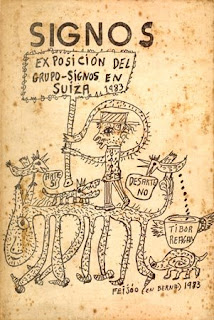 SIGNOS
EXPOSICIÓN DEL
GRUPO-SIGNOS EN
SUIZA 1983
ARTE
SI
DESARTE
NO
TIBOR
REAGAN
FEIJÓO (EN BERNA) 1983